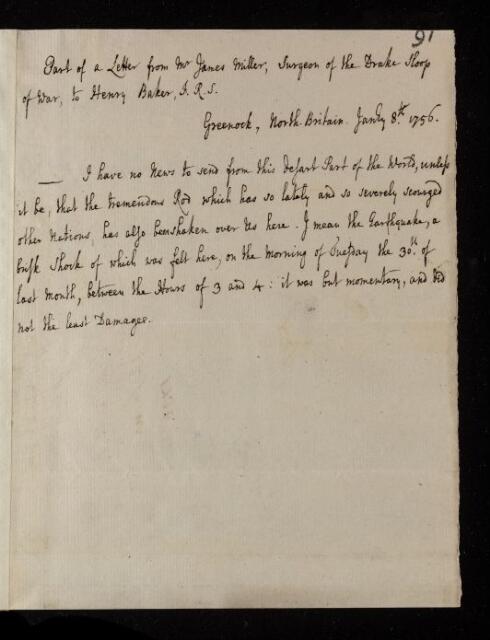 91
Part of a Letter from Mr James Miller, Surgeon of the Drake Sloop
of War, to Henry Baker, F.R.S.
Greenock, North-Britain. Janry 8.th 1756.
— I have no News to send from this desart Part of the World, unless
it be, that the tremendous Rod which has so lately and so severely scourged
other Nations, has also been shaken over Us here. I mean the Earthquake, a
brisk Shock of which was felt here, on the Morning of Tuesday the 30.th of
last Month, between the Hours of 3 and 4: it was but momentary, and did
not the least Damage.